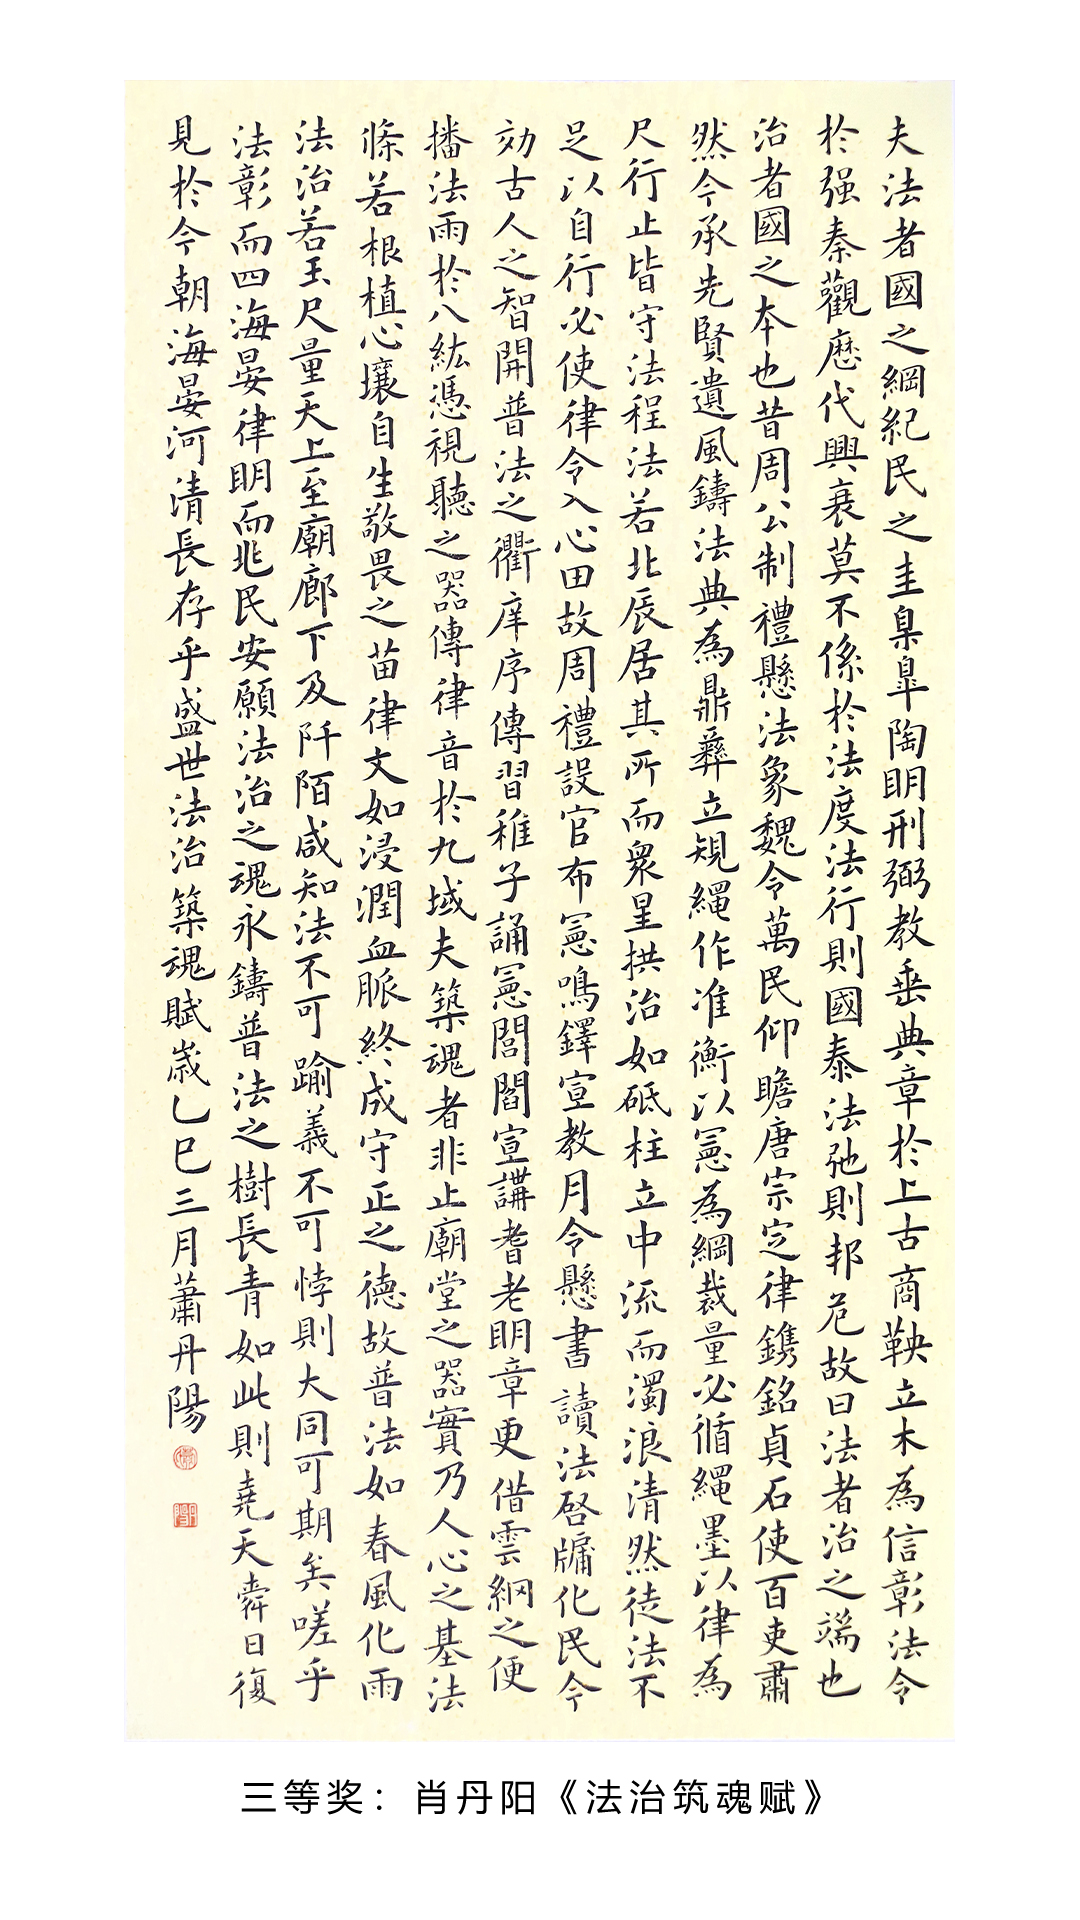 夫法者國之綱紀民之圭臬臯陶明刑弼教垂典章於上古商鞅立木為信彰法令
於强秦觀歷代興衰莫不係於法度法行則國泰法弛則邦危故曰法者治之端也
治者國之本也昔周公制禮懸法象魏令萬民仰瞻唐宗定律鐫銘貞石使百吏肅
然今承先賢遺風鑄法典為鼎彝立規繩作准衡以憲為綱裁量必循繩墨以律為
尺行止皆守法程法若北辰居其所而衆星拱治如砥柱立中流而濁浪清然徒法不
足以自行必使律令入心田故周禮設官布憲鳴鐸宣教月令懸書讀法啓牖化民今
効古人之智開普法之衢庠序傳習稚子誦憲閭閻宣講耆老明章更借雲網之便
播法雨於八紘憑視聽之器傳律音於九域夫築魂者非止廟堂之器實乃人心之基法
條若根植心壤自生敬畏之苗律文如浸潤血脈終成守正之德故普法如春風化雨
法治若玉尺量天上至廟廊下及阡陌咸知法不可踰義不可悖則大同可期矣嗟乎
法彰而四海晏律明而兆民安願法治之魂永鑄普法之樹長青如此則堯天舜日復
見於今朝海晏河清長存乎盛世法治築魂賦歲乙巳三月蕭丹陽
三等奖：肖丹阳《法治筑魂赋》